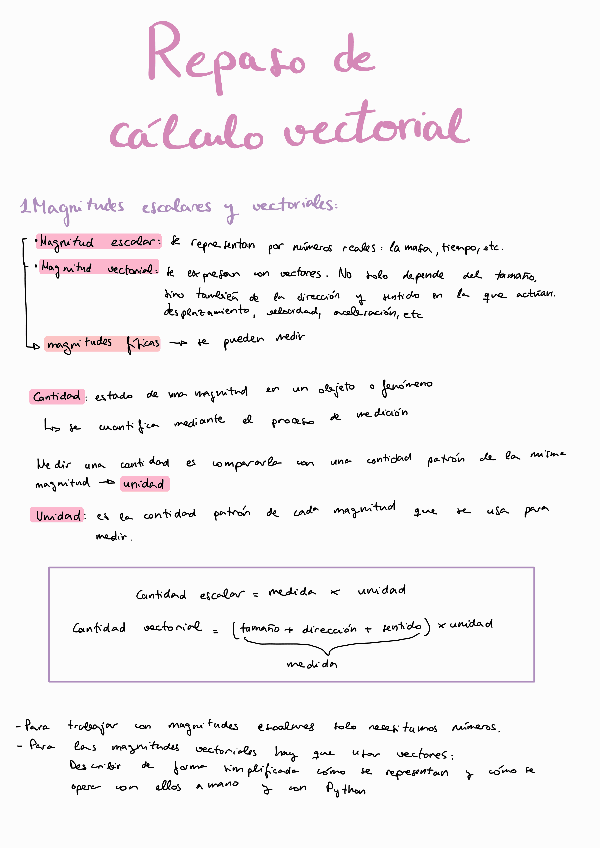 Repaso de
cálculo vectorial
1.Magnitudes escalares y vectoriales:
• Magnitud escalar: se representan por números reales: la masa, tiempo, etc.
• Magnitud vectorial: se expresan con vectores. No solo depende del tamaño,
sino también de la dirección y sentido en la que actúan.
desplazamiento, velocidad, aceleración, etc
magnitudes físicas → se pueden medir
Cantidad: estado de una magnitud en un objeto o fenómeno
↳ se cuantifica mediante el proceso de medición
Medir una cantidad es compararla con una cantidad patrón de la misma
magnitud → unidad
Unidad: es la cantidad patrón de cada magnitud que se usa para
medir.
Cantidad escalar = medida × unidad
Cantidad vectorial = (tamaño + dirección + sentido) × unidad
medida
- Para trabajar con magnitudes escalares solo necesitamos números.
- Para las magnitudes vectoriales hay que usar vectores:
Describir de forma simplificada cómo se representan y cómo se
opera con ellos a mano y con Python